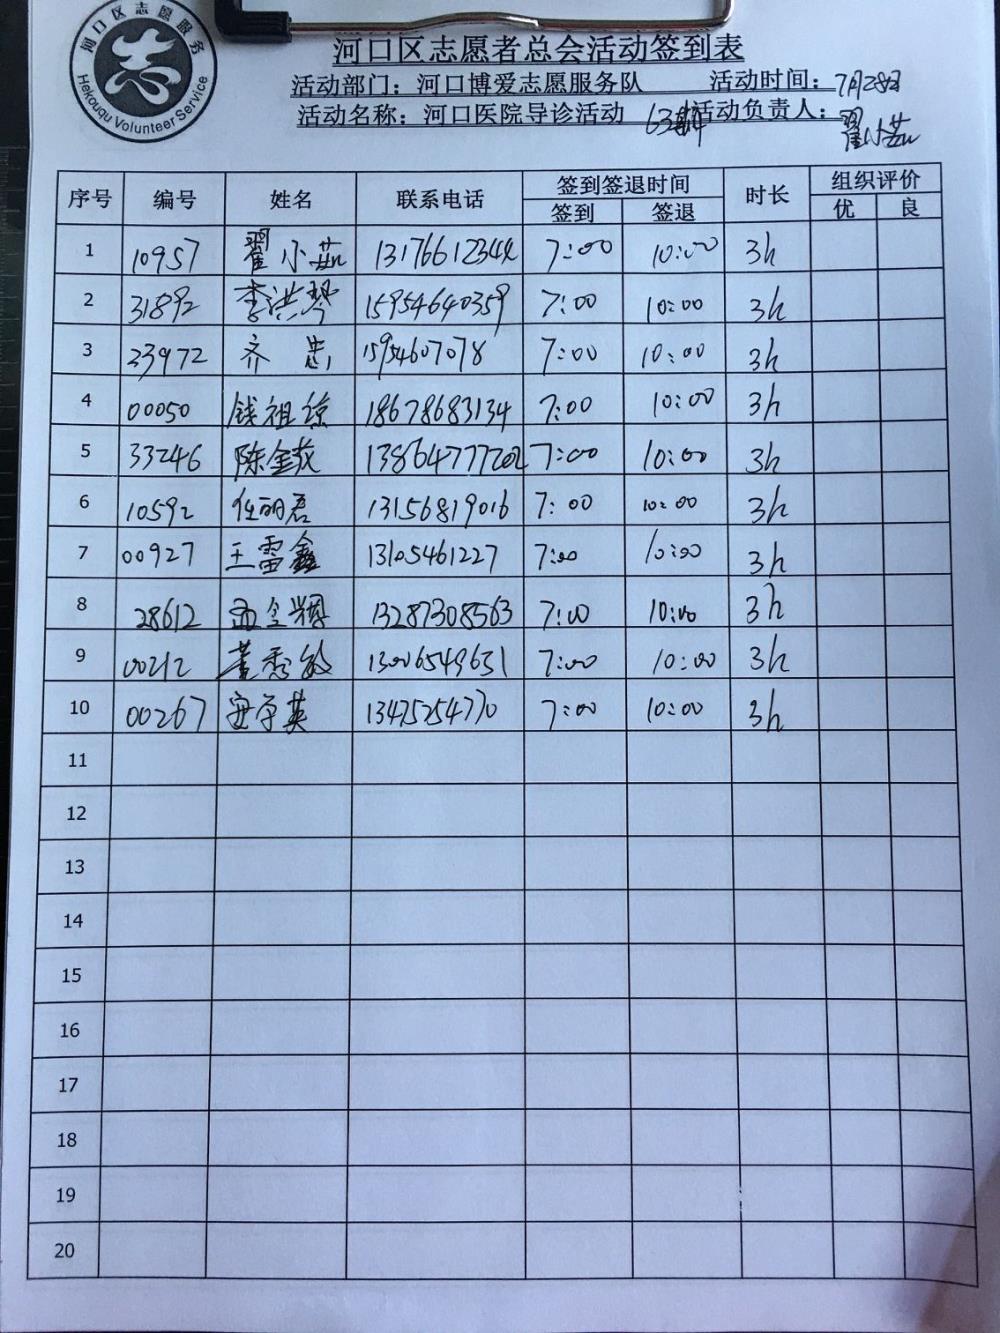 河口区志愿服务
志
Hekouqu Volunteer Service
河口区志愿者总会活动签到表
活动部门：河口博爱志愿服务队 活动时间：7月28日
活动名称：河口医院导诊活动 63期 活动负责人：翟小茹
序号 编号 姓名 联系电话 签到签退时间 时长 组织评价
签到 签退 优 良
1 10957 翟小茹 13176612344 7:00 10:00 3h
2 31892 李洪琴 15954640359 7:00 10:00 3h
3 33972 齐 1594607078 7:00 10:00 3h
4 00050 钱祖 18678683134 7:00 10:00 3h
5 33246 陈金 13864777202 7:00 10:00 3h
6 10592 任丽君 13156819016 7:00 10:00 3h
7 00927 王雷鑫 13105461227 7:00 10:00 3h
8 28612 13287308563 7:00 10:00 3h
9 00212 董秀敏 13006549631 7:00 10:00 3h
10 00267 英 13475254770 7:00 10:00 3h
11
12
13
14
15
16
17
18
19
20